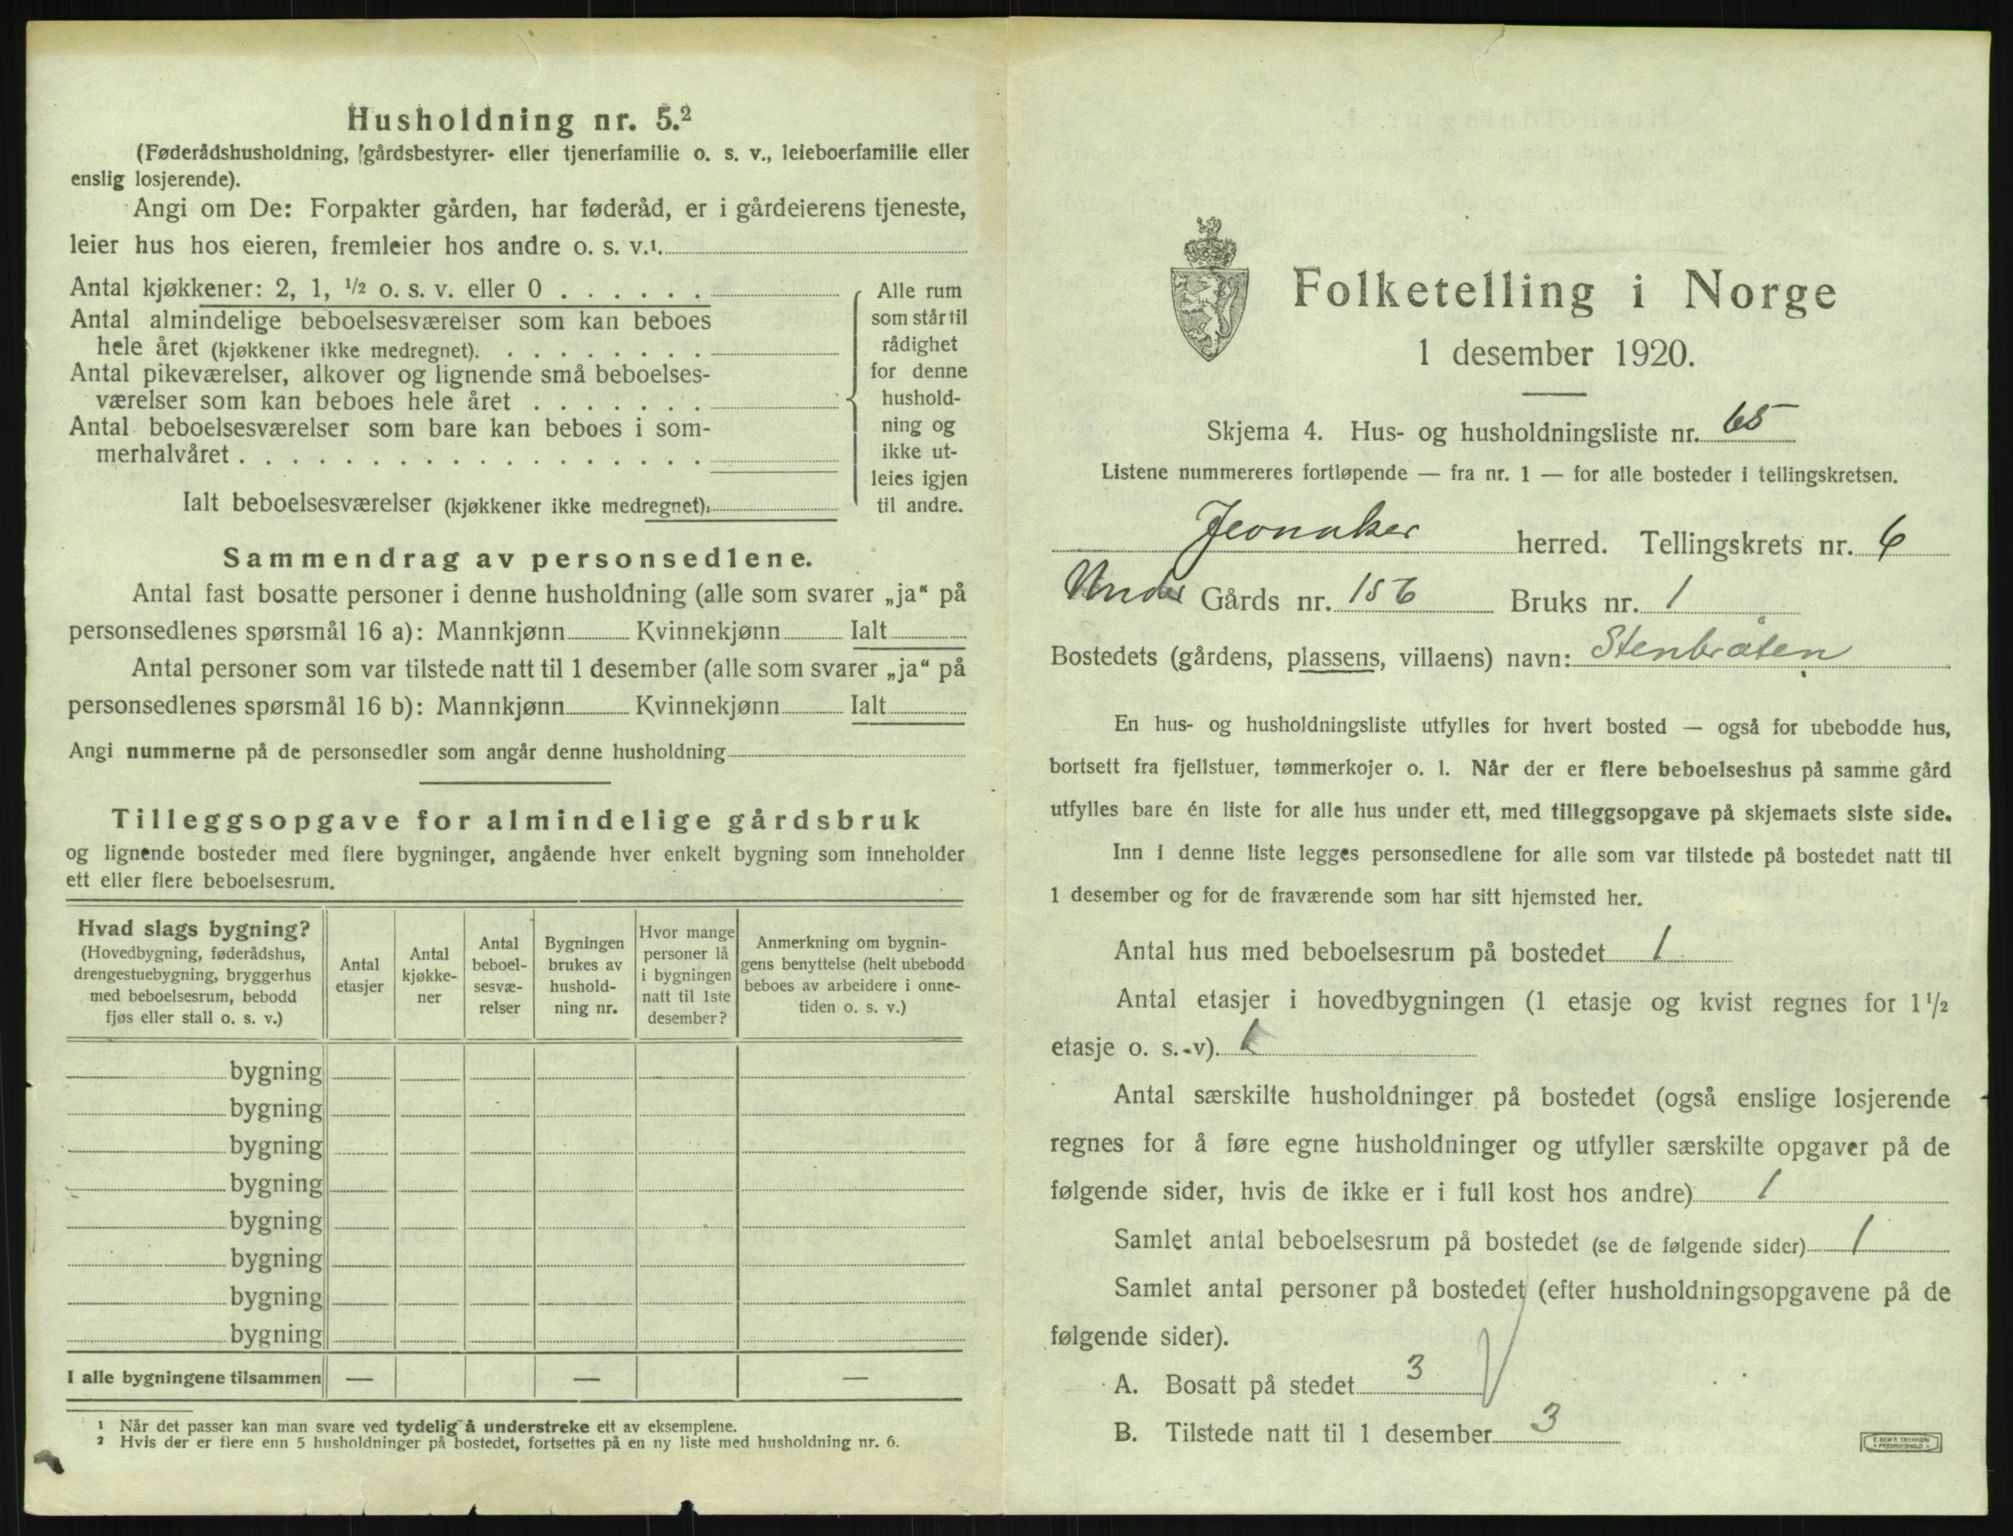 Husholdning nr. 5.²
(Føderådshusholdning, gårdsbestyrer- eller tjenerfamilie o. s. v., leieboerfamilie eller
enslig losjerende).
Angi om De: Forpakter gården, har føderåd, er i gårdeierens tjeneste,
leier hus hos eieren, fremleier hos andre o. s. v.¹.
Antal kjøkkener: 2, 1, ½ o. s. v. eller 0 . . . . . .
Antal almindelige beboelsesværelser som kan beboes
hele året (kjøkkener ikke medregnet). . . . . . . . .
Antal pikeværelser, alkover og lignende små beboelses-
værelser som kan beboes hele året . . . . . . .
Antal beboelsesværelser som bare kan beboes i som-
merhalvåret . . . . . . . . . . . . . . . . . .
Ialt beboelsesværelser (kjøkkener ikke medregnet).
Alle rum
som står til
rådighet
for denne
hushold-
ning og
ikke ut-
leies igjen
til andre.
Sammendrag av personsedlene.
Antal fast bosatte personer i denne husholdning (alle som svarer „ja“ på
personsedlenes spørsmål 16 a): Mannkjønn Kvinnekjønn Ialt
Antal personer som var tilstede natt til 1 desember (alle som svarer „ja“ på
personsedlenes spørsmål 16 b): Mannkjønn Kvinnekjønn Ialt
Angi nummerne på de personsedler som angår denne husholdning
Tilleggsopgave for almindelige gårdsbruk
og lignende bosteder med flere bygninger, angående hver enkelt bygning som inneholder
ett eller flere beboelsesrum.
Hvad slags bygning?
(Hovedbygning, føderådshus,
drengestuebygning, bryggerhus
med beboelsesrum, bebodd
fjøs eller stall o. s. v.)
Antal
etasjer
Antal
kjøkke-
ner
Antal
beboel-
sesvæ-
relser
Bygningen
brukes av
hushold-
ning nr.
Hvor mange
personer lå
i bygningen
natt til 1ste
desember?
Anmerkning om bygnin-
gens benyttelse (helt ubebodd
beboes av arbeidere i onne-
tiden o. s. v.)
bygning
bygning
bygning
bygning
bygning
bygning
bygning
bygning
I alle bygningene tilsammen — — —
¹ Når det passer kan man svare ved tydelig å understreke ett av eksemplene.
² Hvis der er flere enn 5 husholdninger på bostedet, fortsettes på en ny liste med husholdning nr. 6.
Folketelling i Norge
1 desember 1920.
Skjema 4. Hus- og husholdningsliste nr. 65
Listene nummereres fortløpende — fra nr. 1 — for alle bosteder i tellingskretsen.
Jevnaker herred. Tellingskrets nr. 6
Under Gårds nr. 156 Bruks nr. 1
Bostedets (gårdens, plassens, villaens) navn: Stenbråten
En hus- og husholdningsliste utfylles for hvert bosted — også for ubebodde hus,
bortsett fra fjellstuer, tømmerkojer o. l. Når der er flere beboelseshus på samme gård
utfylles bare én liste for alle hus under ett, med tilleggsopgave på skjemaets siste side.
Inn i denne liste legges personsedlene for alle som var tilstede på bostedet natt til
1 desember og for de fraværende som har sitt hjemsted her.
Antal hus med beboelsesrum på bostedet 1
Antal etasjer i hovedbygningen (1 etasje og kvist regnes for 1½
etasje o. s. v). 1
Antal særskilte husholdninger på bostedet (også enslige losjerende
regnes for å føre egne husholdninger og utfyller særskilte opgaver på de
følgende sider, hvis de ikke er i full kost hos andre) 1
Samlet antal beboelsesrum på bostedet (se de følgende sider) 1
Samlet antal personer på bostedet (efter husholdningsopgavene på de
følgende sider).
A. Bosatt på stedet 3
B. Tilstede natt til 1 desember 3